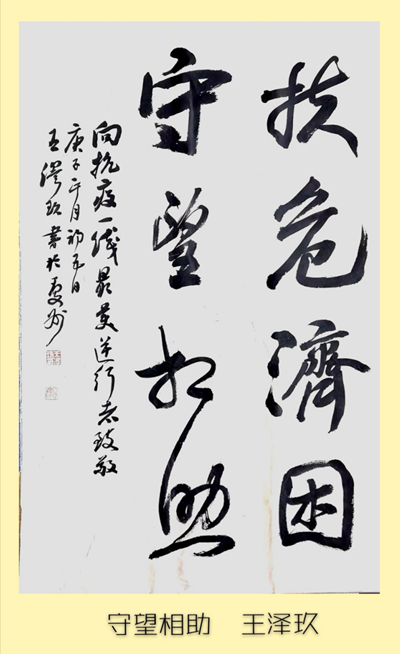 扶危濟困
守望相助
向抗疫一线最美逆行者致敬
庚子二月初日
王澤玖書於州
守望相助 王泽玖